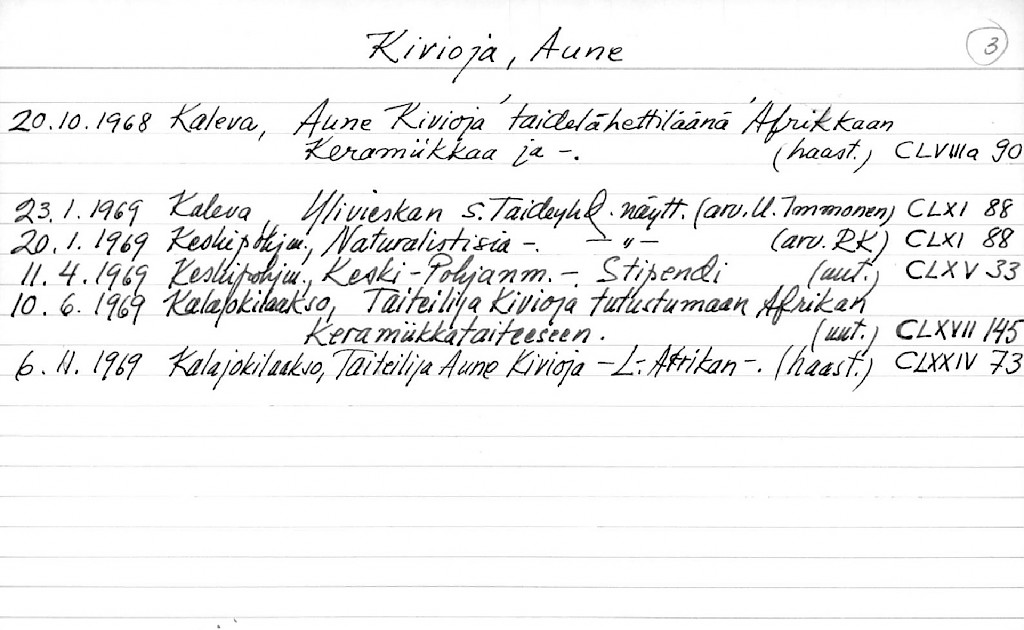 Kivioja, Aune 3
20.10.1968 Kaleva, Aune Kivioja 'taidelähettiläänä' Afrikkaan
Keramiikkaa ja -. (haast.) CLVIIIa 90
23.1.1969 Kaleva, Ylivieskan s. Taideyhd. näytt. (arv. U. Immonen) CLXI 88
20.1.1969 Keskipohjm., Naturalistisia -. — " — (arv. RK) CLXI 88
11.4.1969 Keskipohjm., Keski-Pohjanm. -. Stipendi (uut.) CLXV 33
10.6.1969 Kalajokilaakso, Taiteilija Kivioja tutustumaan Afrikan
Keramiikkataiteeseen. (uut.) CLXVII 145
6.11.1969 Kalajokilaakso, Taiteilija Aune Kivioja -L-Afrikan -. (haast.) CLXXIV 73